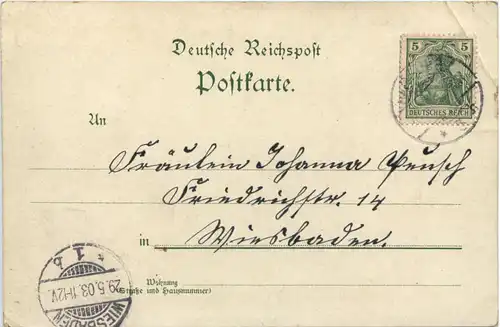 Deutsche Reichspost
Postkarte.
5 5
DEUTSCHES REICH
An
Fräulein Johanna
Friedrichstr. 14
in Wiesbaden.
Wohnung
(Straße und Hausnummer)
* 1 b
29.5.03. 11-12V.
WIESBADEN